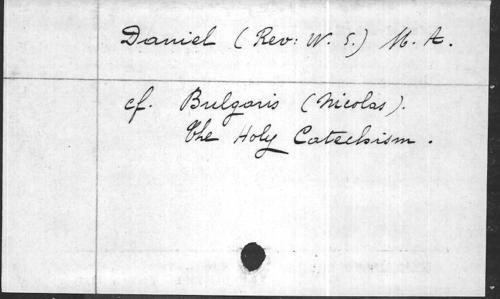 Daniel (Rev: W. S.) M. A.
cf. Bulgaris (Nicolas).
The Holy Catechism.